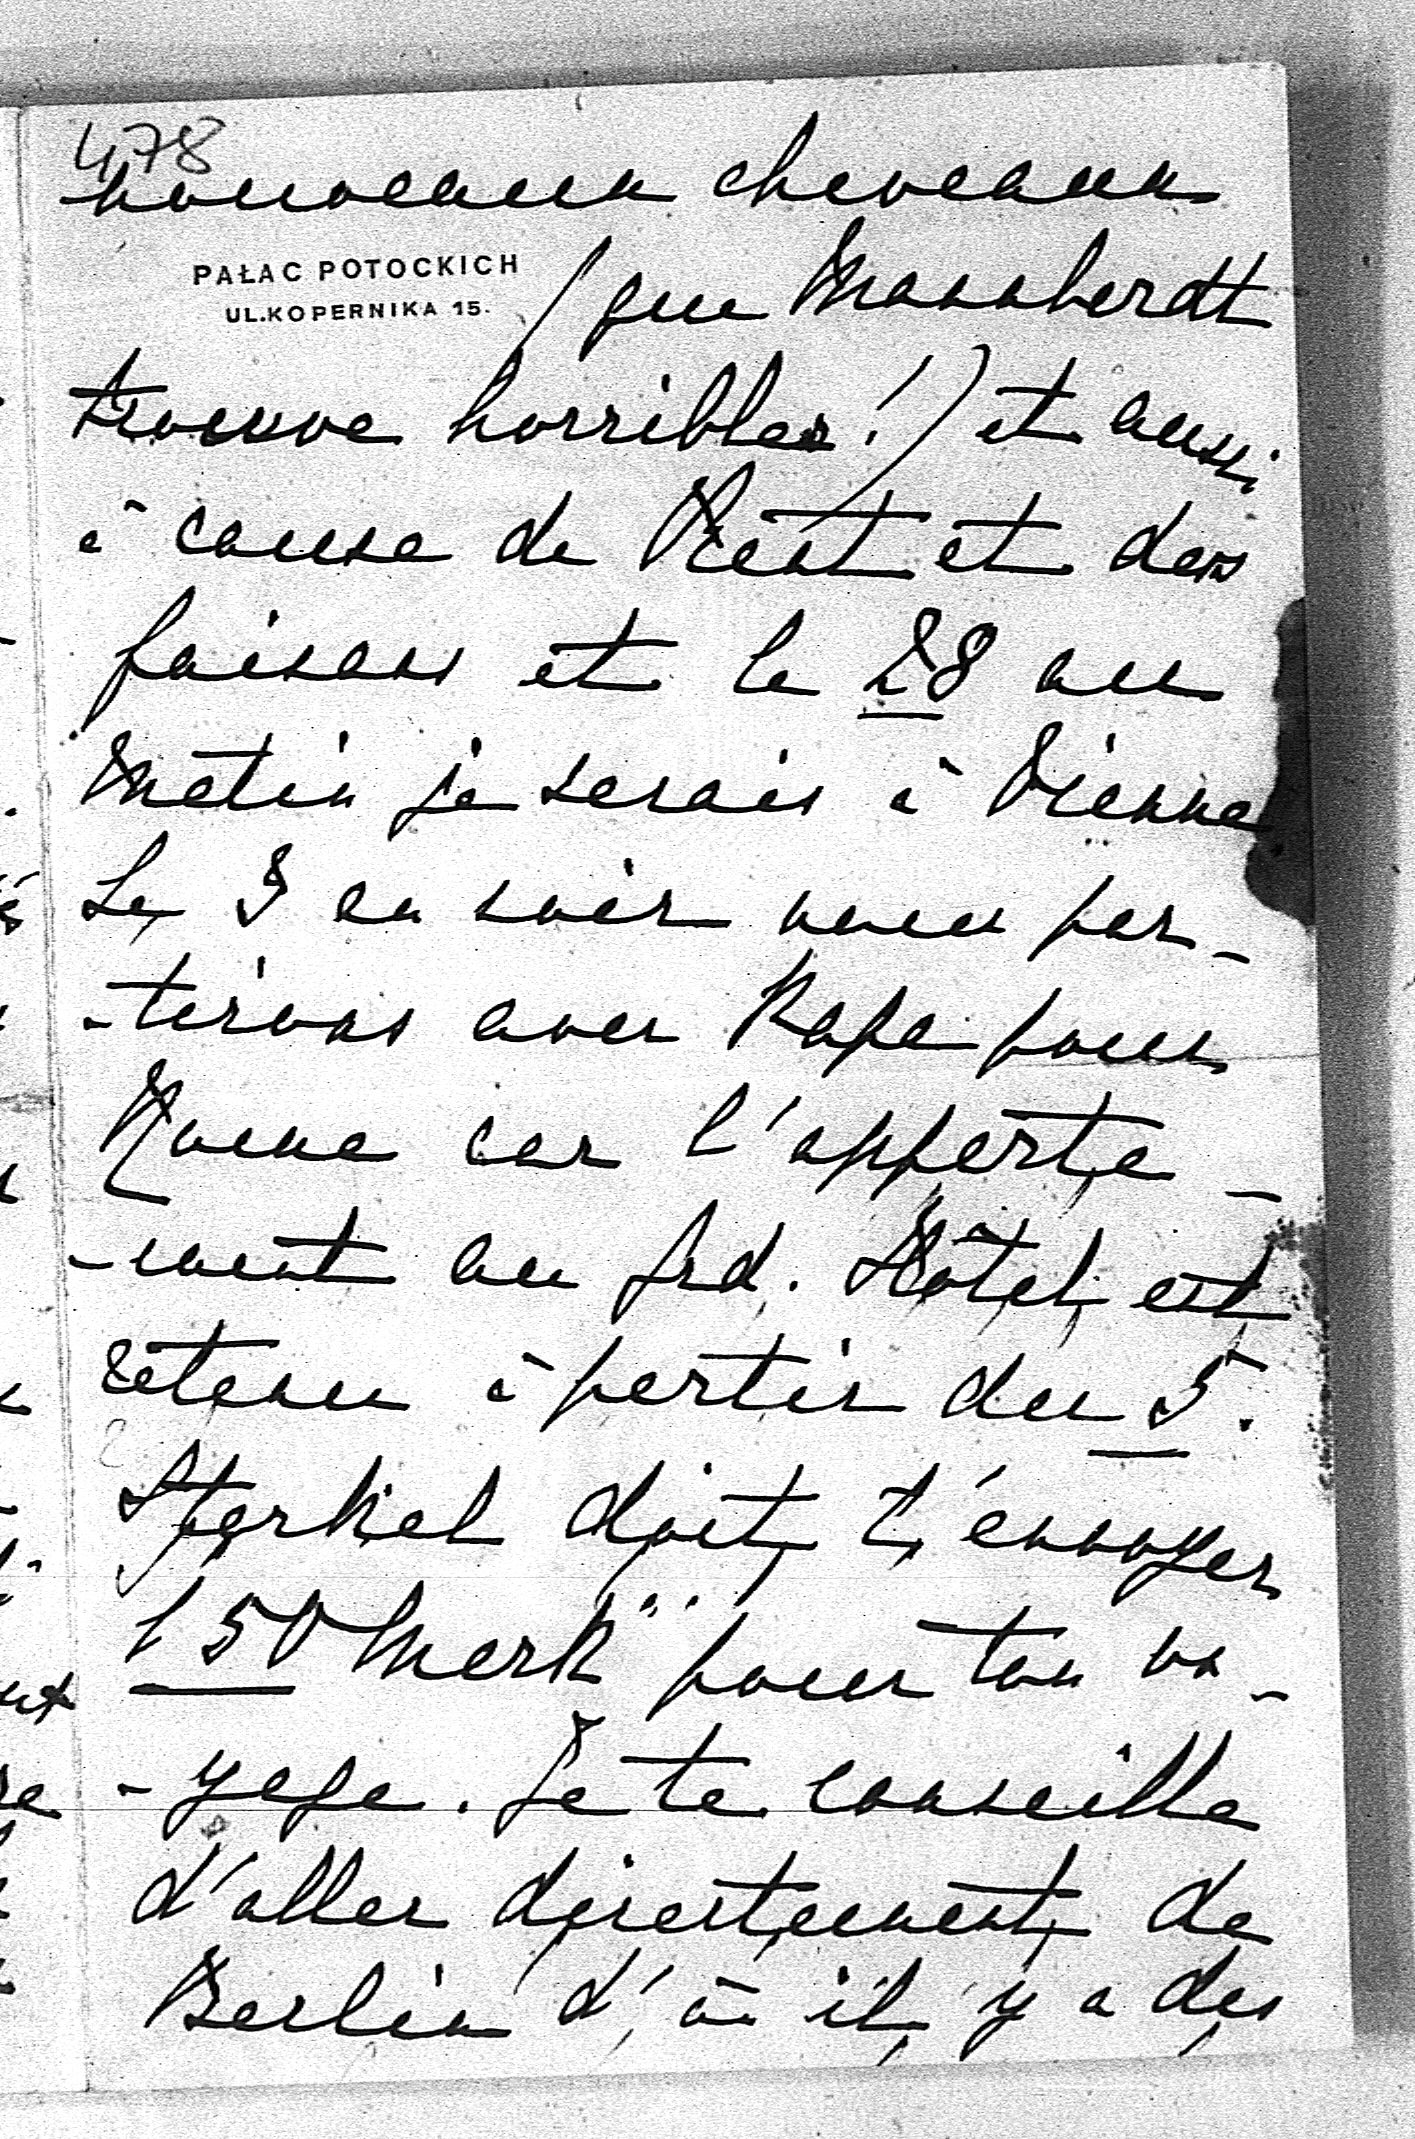 478
nouveaux chevaux
PAŁAC POTOCKICH
UL.KOPERNIKA 15.
(que Mannherdt
trouve horribles!) et aussi
à cause de et des
faisans et le 28 au
matin je serais à Vienne
Le 3 au soir nous par-
-tirons avec Papa pour
Rome car l'apparte-
-ment au Grd. Hôtel est
retenu à partir du 5.
doit t'envoyer
150 Mark pour ton vo-
-yage. Je te conseille
d'aller directement de
Berlin d'où il y a des